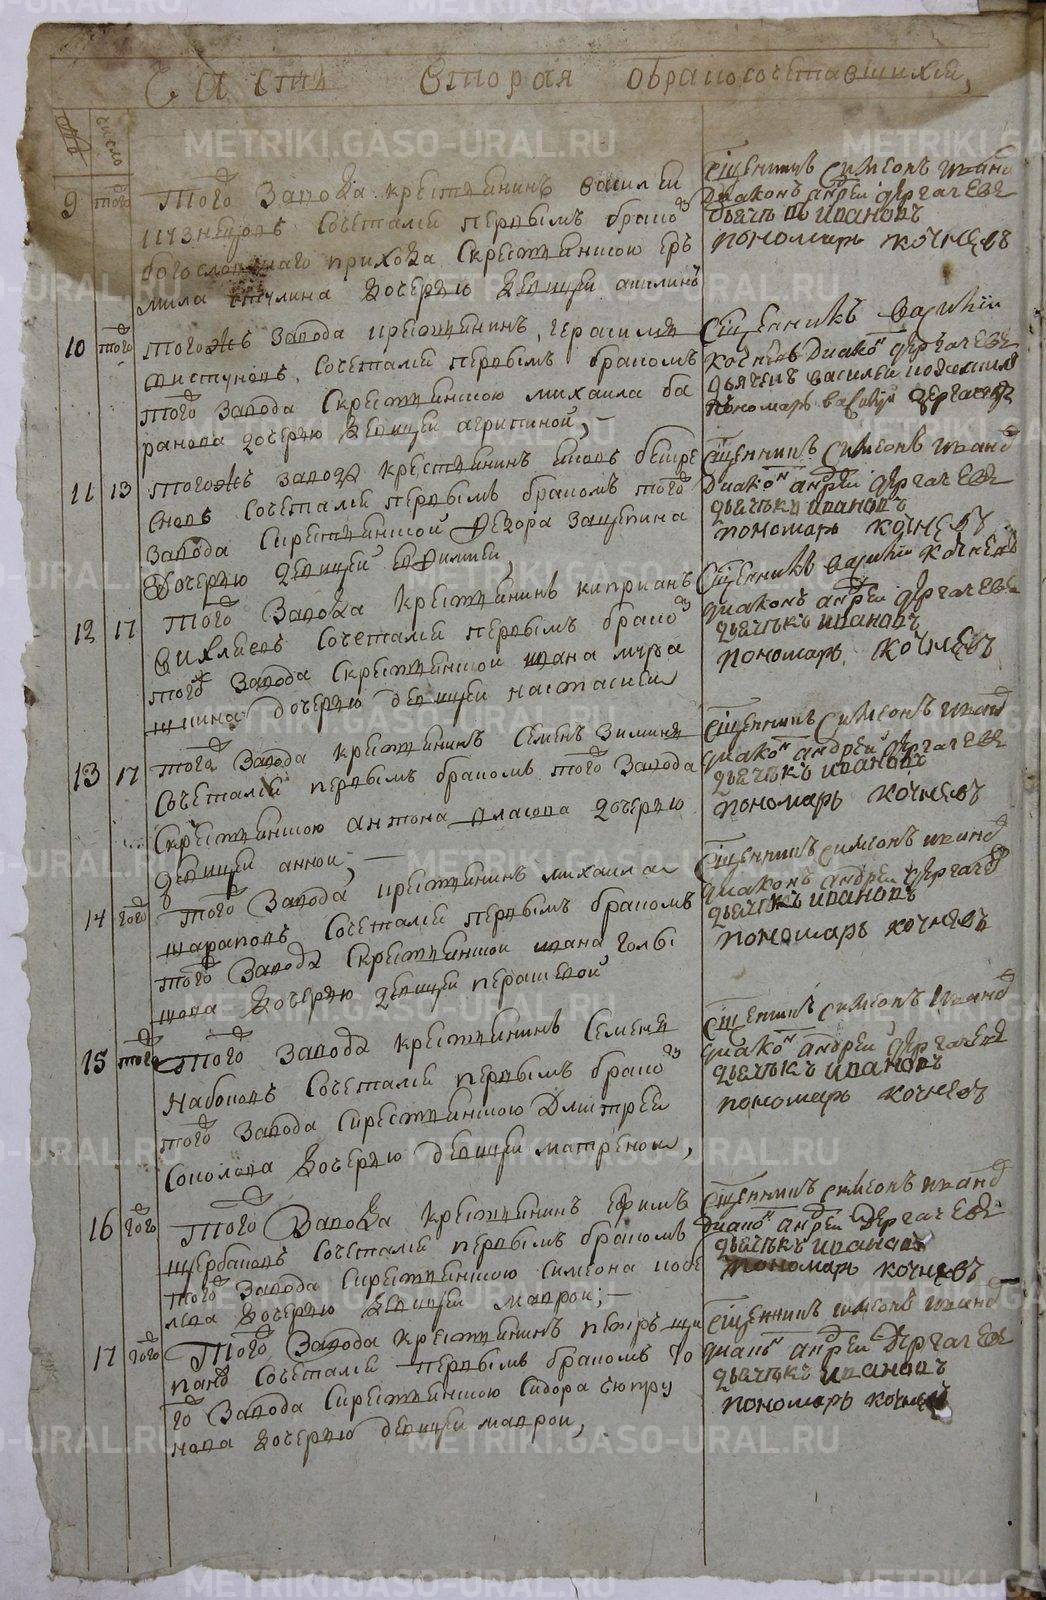 Часть вторая обракосочетавшихся,
число
9 того
того завода крестьянинъ василеи
сочеталси первымъ брако
богословскаго прихода скрестьянскою ер
мила дочерью девицеи
Сщенникъ симеонъ иванo
диаконъ андреи дергачевъ
дьячекъ ивановъ
пономарь кочневъ
10 того
тогожъ завода крестьянинъ герасимъ
сочеталси первымъ бракомъ
того завода скрестьянскою михаила ба
ранова дочерью девицеи агрипиной,
Сщенникъ
кочневъ диакон дергачевъ
дьячекъ василеи
пономарь дергачевъ
11 13
тогожъ завода крестьянинъ
сочеталси первымъ бракомъ того
завода скрестьянской федора защепина
дочерью девицеи ефимиеи,
Сщенникъ симеонъ иванo
диакон андреи дергачевъ
дьячекъ ивановъ
пономарь кочневъ
12 17
того завода крестьянинъ киприанъ
вихляевъ сочеталси первымъ брако
того завода скрестьянской ивана
дочерью девицеи настасиеи
Сщенникъ кочневъ
диаконъ андреи дергачевъ
дьячекъ ивановъ
пономарь кочневъ
13 17
того завода крестьянинъ семенъ зиминъ
сочеталси первымъ бракомъ того завода
скрестьянскою антона власова дочерью
девицеи аннои;
Сщенникъ симеонъ иванo
диакон андреи дергачевъ
дьячекъ ивановъ
пономарь кочневъ
14 того
того завода крестьянинъ михаила
шараповъ сочеталси первымъ бракомъ
того завода скрестьянской ивана голы
шова дочерью девицеи
Сщенникъ симеонъ иванo
диаконъ андреи дергаче
дьячекъ ивановъ
пономарь кочневъ
15 того
того завода крестьянинъ семенъ
набоковъ сочеталси первымъ брако
того завода скрестьянскою дмитреи
соколова дочерью девицеи матреной,
Сщенникъ симеонъ иванo
диакон андреи дергачевъ
дьячекъ ивановъ
пономарь кочневъ
16 того
того завода крестьянинъ ефимъ
щербаковъ сочеталси первымъ бракомъ
того завода скрестьянскою симеона кобе
лева дочерью девицеи маврои;
Сщенникъ симеонъ иванo
диакон андреи дергачевъ
дьячекъ ивановъ
пономарь кочневъ
17 того
того завода крестьянинъ петръ
сочеталси первымъ бракомъ то
го завода скрестьянскою сидора
дочерью девицеи маврои,
Сщенникъ симеонъ иванo
диакон андреи дергачевъ
дьячекъ ивановъ
пономарь
METRIKI.GASO-URAL.RU